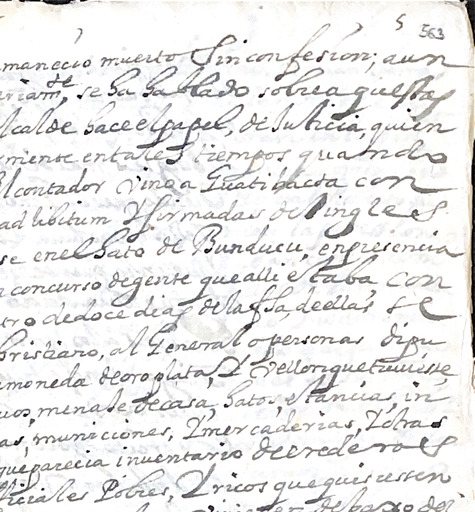 5 563
manecio muerto sin confesion; aun
eriamte, se ha hablado sobre aquestas
lcalde hace el papel, de Justicia, quien
miense en tales tiempos quando
el contador vino a Guatibacoa con
ad libitum y firmadas del ingles
se en el hato de Bunducu, en presencia
concurso de gente que alli estaba, con
tro de doce dias de la fha, de ellas, se
bristiano, al General o personas dipu
moneda de oro plata, y vellon que tuviese
uos, menaje de casa, hatos, estancias, in
as, municiones, y mercaderias, y otras
que parecia inventario de erederos
ficiales Pobres, y ricos que quisiessen